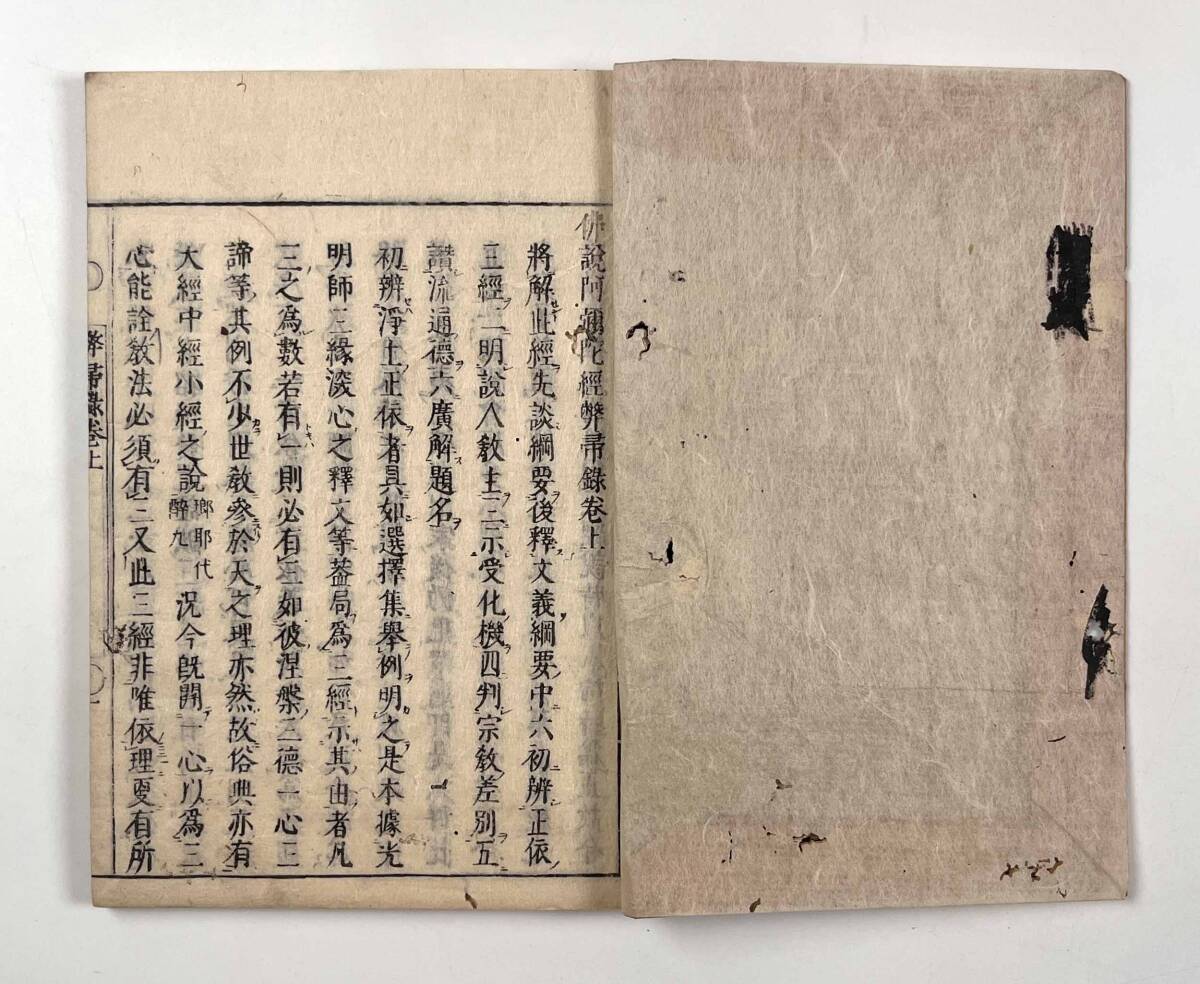 佛説阿彌陀經弊帚錄卷上
將解此經先談綱要後釋文義綱要中六初辨正依
三經二明説人教主三示受化機四判宗教差別五
讃流通德六廣解題名
初辨淨土正依者具如選擇集舉例明之是本據光
明師三緣深心之釋文等葢局爲三經示其由者凡
三之爲數若有一則必有三如彼涅槃三德一心三
諦等其例不少世教參於天之理亦然故俗典亦有
大經中經小經之説瑯耶代醉九況今既開一心以爲三
心能詮教法必須有三又此三經非唯依理夏有所
弊帚錄卷上
一